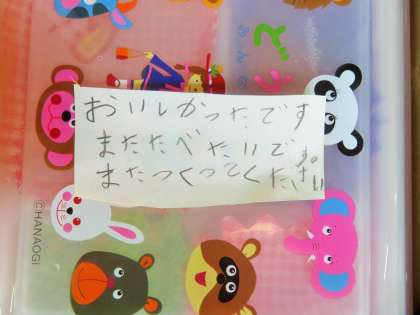 おいしかったです
またたべたいです。
またつくってください
©HANAOGI